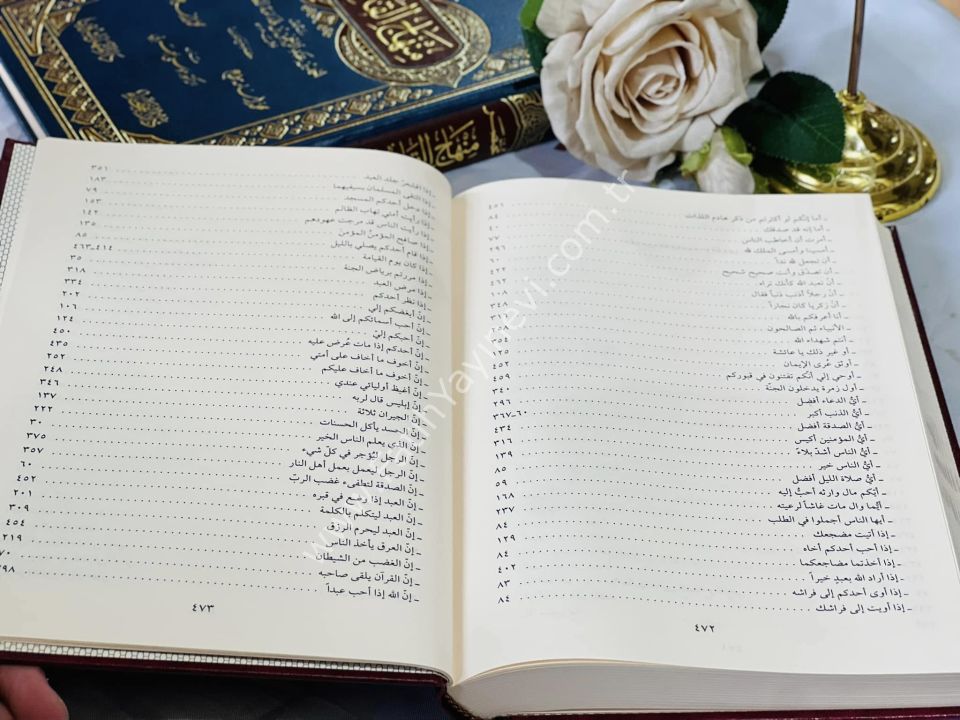 منهاج القا
منهاج القا
ـ أما إنكم لو أكثرتم من ذكر هاذم اللذات ٤٥١
ـ أما إنه قد صدقك ٨٤
ـ أمرت أن أخاطب الناس ٤٠
ـ أمسينا وأمسى الملك لله ٧٧
ـ أن تجعل لله نداً ٢٩٦
ـ أن تصدّق وأنت صحيح شحيح ٦٠
ـ أن تعبد الله كأنك تراه ٤٢٢
ـ أنّ رجلاً أذنب ذنباً فقال ٤٦٢
ـ أنّ زكريا كان نجاراً ١٠٨
ـ أنا أعرفكم بالله ٣٤٨
ـ الأنبياء ثم الصالحون ٣١٨
ـ أنتم شهداء الله
ـ أو غير ذلك يا عائشة
ـ أوثق عُرى الإيمان ١٢٥
ـ أوحي إلي أنّكم تفتنون في قبوركم ٤٥٢
ـ أول زمرة يدخلون الجنّة ٤٥٩
ـ أيُّ الدعاء أفضل ٣٤٠
ـ أيُّ الذنب أكبر ٢٩٦
ـ أيُّ الصدقة أفضل ٦٠ـ٣٦٧
ـ أيُّ المؤمنين أكيس ٤٣٤
ـ أيُّ الناس أشدّ بلاءً ٣١٦
ـ أيُّ الناس خير ١٣٩
ـ أيُّ صلاة الليل أفضل ٨٥
ـ أيّكم مال وارثه أحبُّ إليه ٥٩
ـ أيُّما وال مات غاشاً لرعيته ١٦٨
ـ أيها الناس أجملوا في الطلب ٢٣٧
ـ إذا أتيت مضجعك ٨٤
ـ إذا أحب أحدكم أخاه ١٢٩
ـ إذا أخذتما مضاجعكما ٨٤
ـ إذا أراد الله بعبدٍ خيراً ٤٠٢
ـ إذا أوى أحدكم إلى فراشه ٨٣
ـ إذا أويت إلى فراشك ٨٤
٤٧٢
ـ إذا اقشعرّ جلد العبد ٣٥١
ـ إذا التقى المسلمان بسيفيهما ١٨٣
ـ إذا دخل أحدكم المسجد ٧٩
ـ إذا رأيت أمتي تهاب الظالم ١٥٣
ـ إذا رأيت الناس قد مرجت عهودهم ١٤٢
ـ إذا صافح المؤمنُ المؤمن ١٣٥
ـ إذا قام أحدكم يصلي بالليل ٨٥
ـ إذا كان يوم القيامة ٤١٤ـ٤٦٣
ـ إذا مررتم برياض الجنة ٣٥
ـ إذا مرض العبد ٣١٨
ـ إذا نظر أحدكم ٣٣٤
ـ إنّ أبغضكم إلي ٢٠٢
ـ إنّ أحب أسمائكم إلى الله ١٠٦
ـ إنّ أحبكم إليّ ١٢٤
ـ إنّ أحدكم إذا مات عُرض عليه ٤٥٠
ـ إنّ أخوف ما أخاف على أمتي ٤٣٥
ـ إنّ أخوف ما أخاف عليكم ٢٥٢
ـ إنّ أغبط أوليائي عندي ٢٤٨
ـ إنّ إبليس قال لربه ٣٤٦
ـ إنّ الجيران ثلاثة ١٣٧
ـ إنّ الحسد يأكل الحسنات ٢٢٢
ـ إنّ الذي يعلم الناس الخير ٣٠
ـ إنّ الرجل ليُؤجر في كلّ شيء ٣٧٥
ـ إنّ الرجل ليعمل بعمل أهل النار ٣٥٧
ـ إنّ الصدقة لتطفىء غضب الربّ ٦٠
ـ إنّ العبد إذا وضع في قبره ٤٥٢
ـ إنّ العبد ليتكلم بالكلمة ٢٠١
ـ إنّ العبد ليحرم الرزق ٣٠٩
ـ إنّ العرق يأخذ الناس ٤٥٤
ـ إنّ الغضب من الشيطان ٢١٩
ـ إنّ القرآن يلقى صاحبه ٧٠
ـ إنّ الله إذا أحب عبداً ٣٩٨
٤٧٣